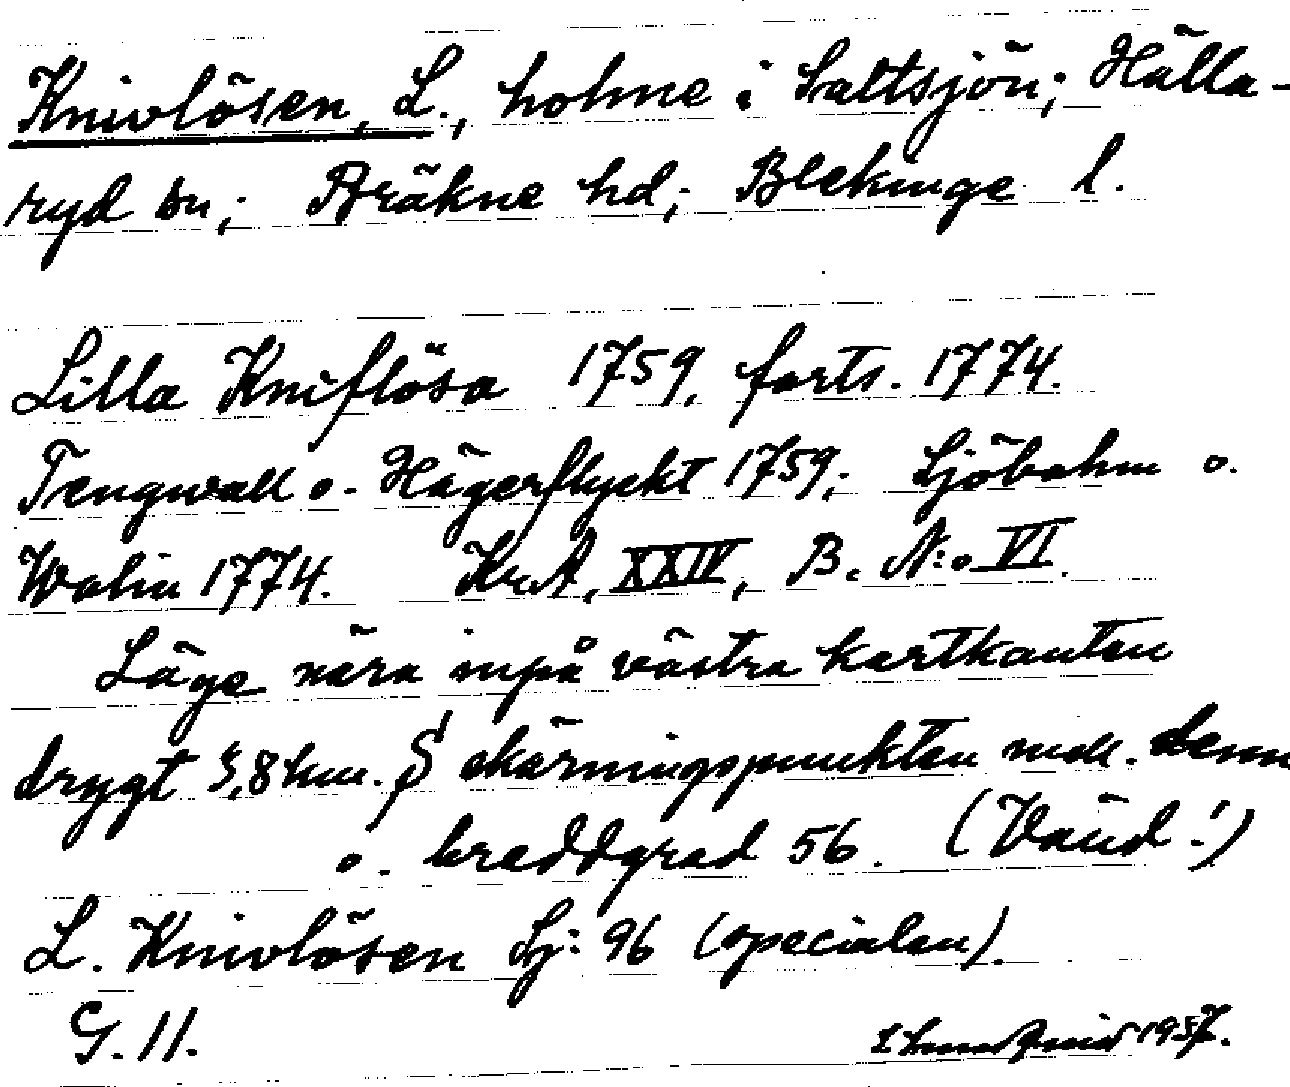 Knivlösen, L., holme i Saltsjön; Hälla-
ryd sn; Bräkne hd; Blekinge l.
Lilla Kniflösa 1759, forts. 1774.
Tengwall o. Hägerflyckt 1759; Sjöbohm o.
Walin 1774. Kr.A, XXIV, B. N:o VI.
Läge nära inpå västra kartkanten
drygt 3,8 km. S skärningspunkten mell. denna
o. breddgrad 56. (Vänd!)
L. Knivlösen Sj: 96 (specialen).
G. 11.
1957.